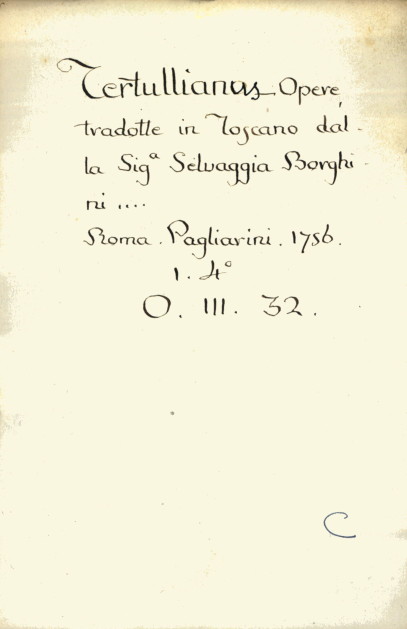 Tertullianus Opere,
tradotte in Toscano dal-
la Sigª Selvaggia Borghi-
ni ....
Roma. Pagliarini. 1756.
1. 4°
O. III. 32.
C